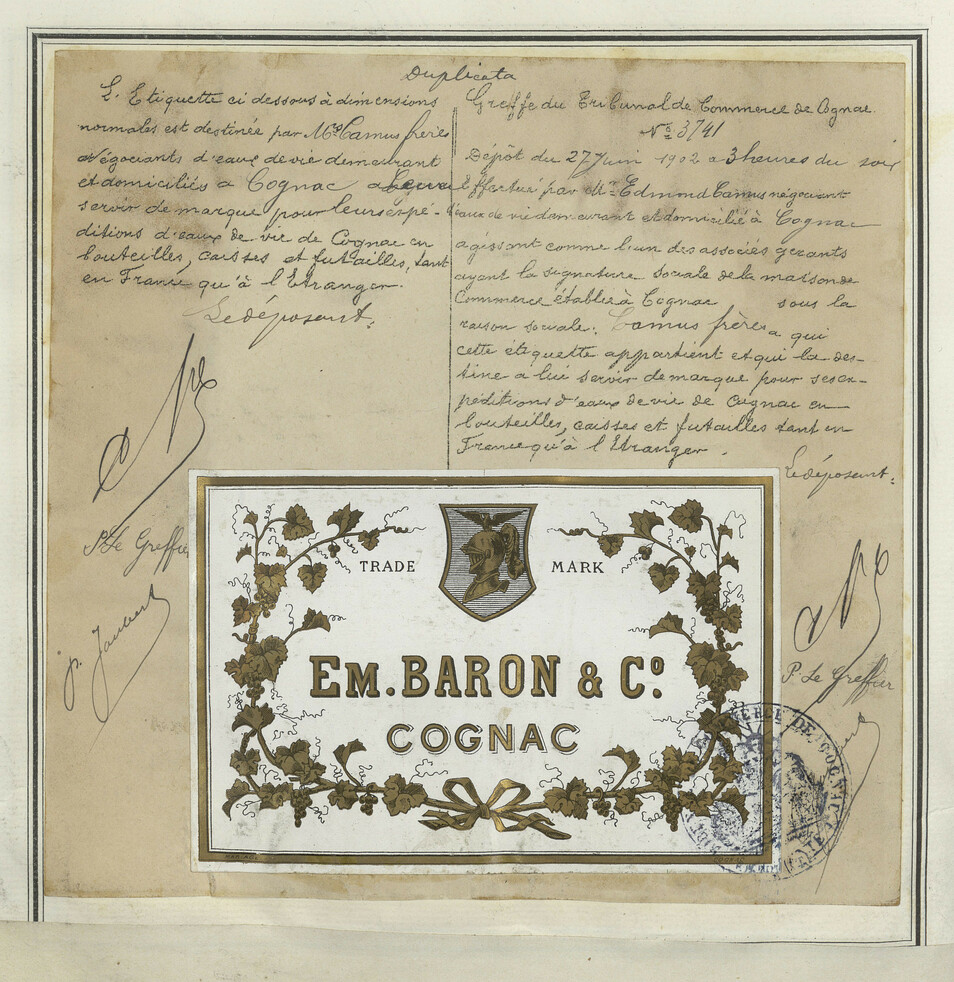 Duplicata
L'Etiquette ci dessous à dimensions
normales est destinée par Mrs Camus frères
négociants d'eaux de vie demeurant
et domiciliés à Cognac à leur
servir de marque pour leurs expé-
ditions d'eaux de vie de Cognac en
bouteilles, caisses et futailles, tant
en France qu'à l'Etranger.
Le déposant.
P. Le Greffier
Greffe du Tribunal de Commerce de Cognac
No 3741
Dépôt du 27 Juin 1902 à 3 heures du soir
Effectué par Mr Edmond Camus négociant
eaux de vie demeurant et domicilié à Cognac
agissant comme l'un des associés gérants
ayant la signature sociale de la maison de
Commerce établie à Cognac sous la
raison sociale: Camus frères à qui
cette étiquette appartient et qui la des-
tine à lui servir de marque pour ses ex-
péditions d'eaux de vie de Cognac en
bouteilles, caisses et futailles tant en
France qu'à l'Etranger.
Le déposant.
P. Le Greffier
TRADE MARK
EM. BARON & Co.
COGNAC
COMMERCE DE COGNAC